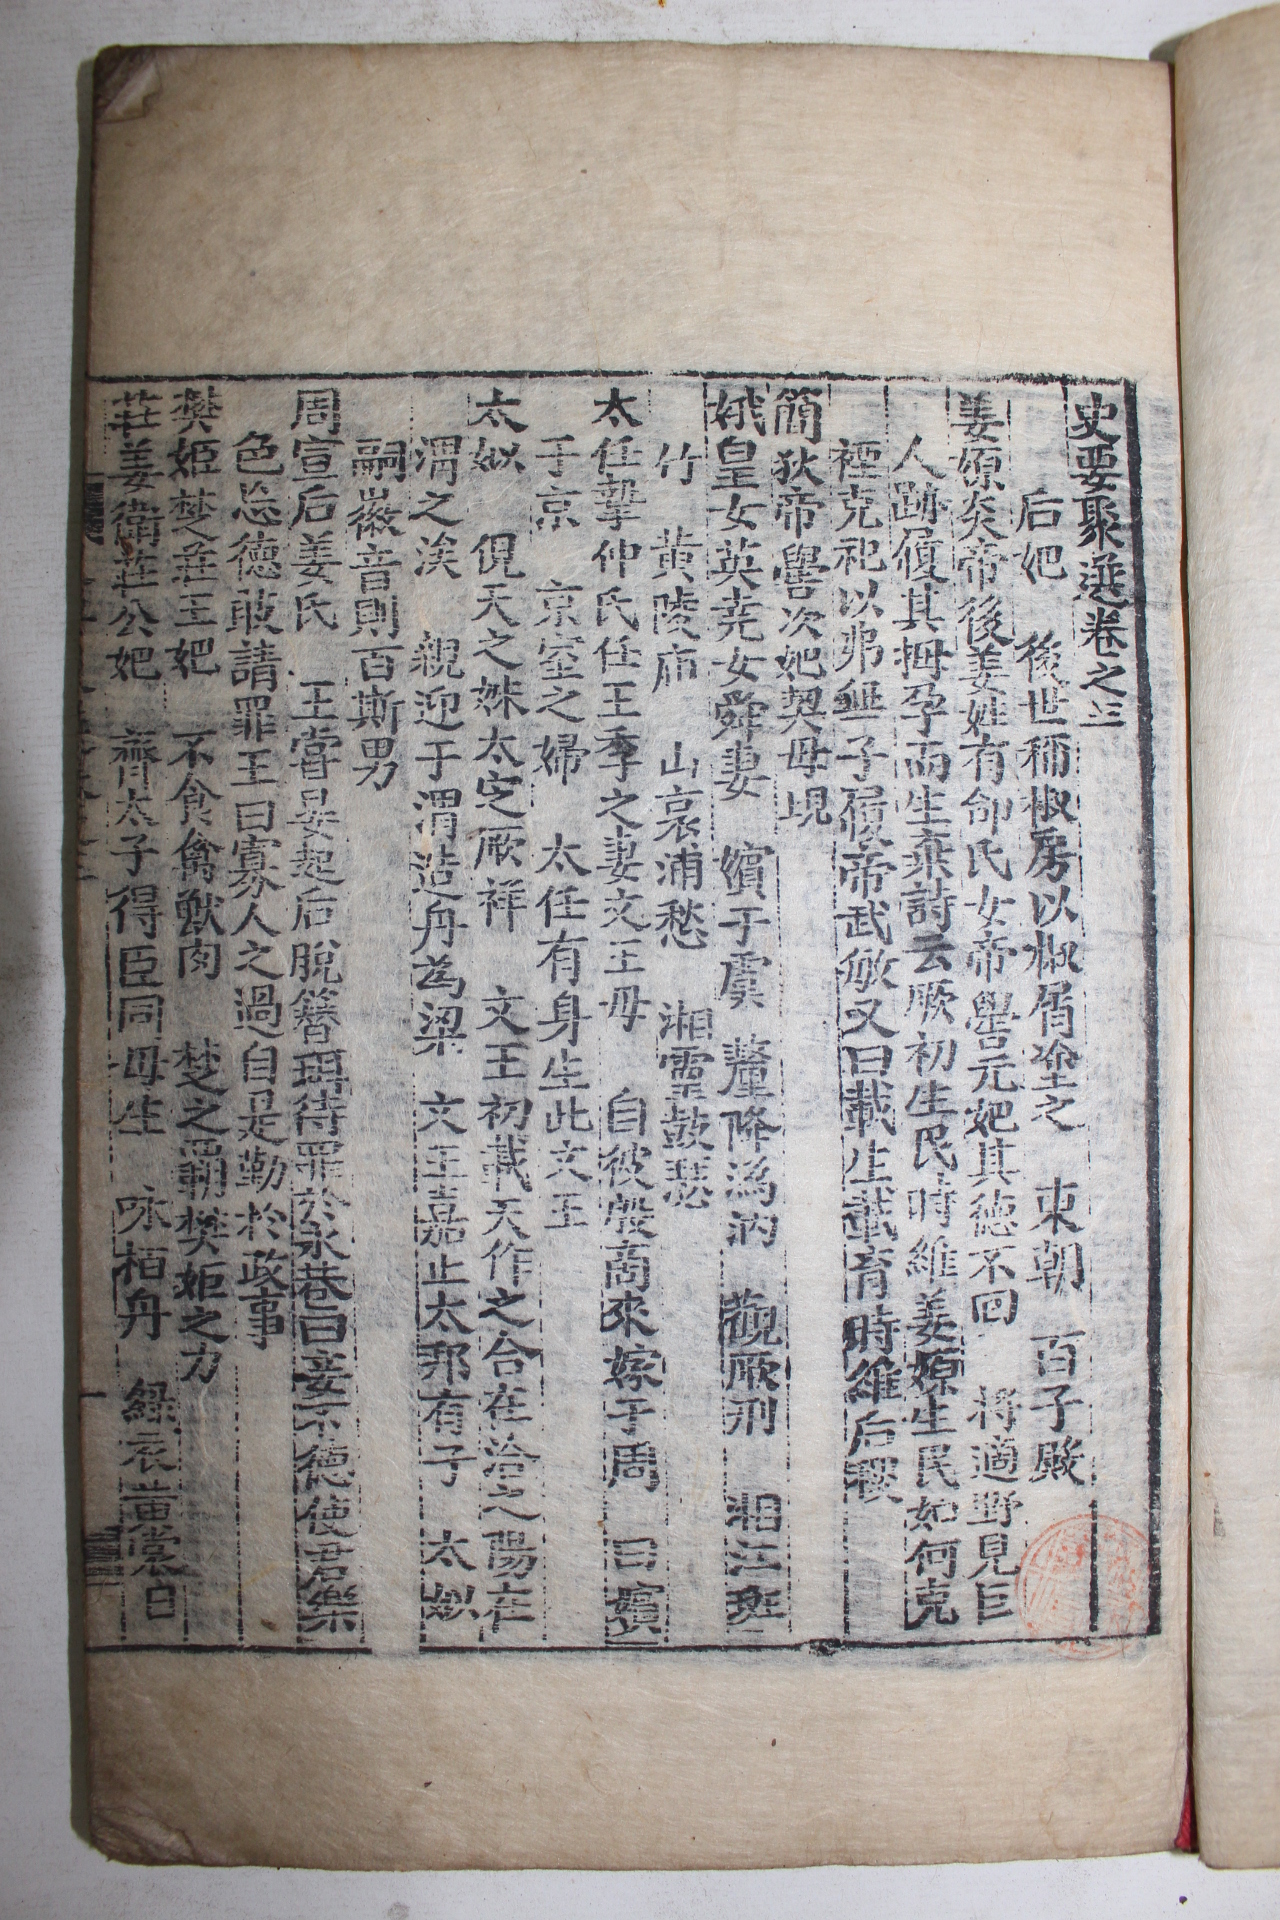 史要聚選卷之三
后妃 後世稱椒房以椒屑塗之 東朝 百子殿
姜嫄炎帝後姜姓有邰氏女帝嚳元妃其德不回 將適野見巨
人跡履其拇孕而生棄詩云厥初生民時維姜嫄生民如何克
禋克祀以弗無子履帝武敏又曰載生載育時維后稷
簡狄帝嚳次妃契母
娥皇女英尭女舜妻 嬪于虞 釐降溈汭 觀厥刑 湘江班
竹 黄陵庙 山哀浦愁 湘灵鼓瑟
太任摯仲氏任王季之妻文王母 自彼殷商來嫁于周 曰嬪
于京 京室之婦 太任有身生此文王
太姒 俔天之妹太定厥祥 文王初載天作之合在洽之陽在
渭之涘 親迎于渭造舟爲梁 文王嘉止太邦有子 太姒
嗣徽音則百斯男
周宣后姜氏 王嘗晏起后脫簪珥待罪於永巷曰妾不德使君樂
色忘德敢請罪王曰寡人之過自是勤於政事
樊姬楚莊王妃 不食禽獸肉 楚之霸樊姬之力
莊姜衛莊公妃 齊太子得臣同母生 咏栢舟 綠衣黃裳白